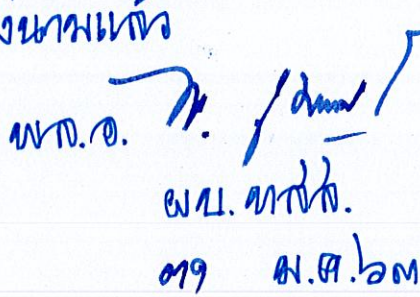 งนามแล้ว
พล.อ.
ผบ.ทสส.
๓๑ ม.ค.๖๓